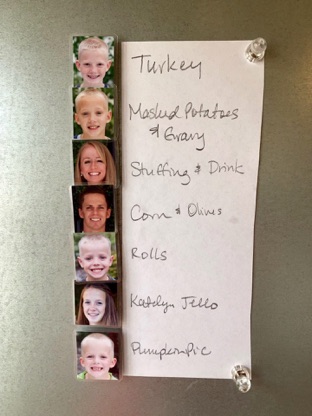 Turkey
Mashed Potatoes
& Gravy
Stuffing & Drink
Corn & Olives
Rolls
Katelyn Jello
Pumpkin Pie